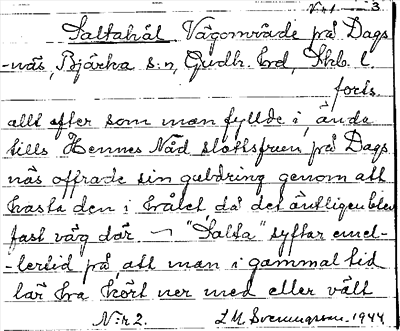 Nr 1 3
Saltahål Vägområde på Dags
-näs, Bjärka s:n, Gudh. hrd, Skb. l.
forts.
allt efter som man fyllde i, ända
tills Hennes Nåd slottsfrun på Dags
näs offrade sin guldring genom att
kasta den i hålet, då det äntligen blev
fast väg där — "Salta" syftar emel-
-lertid på, att man i gammal tid
lär ha kört ner med eller vält
N:r 2. L M Svenungsson. 1944